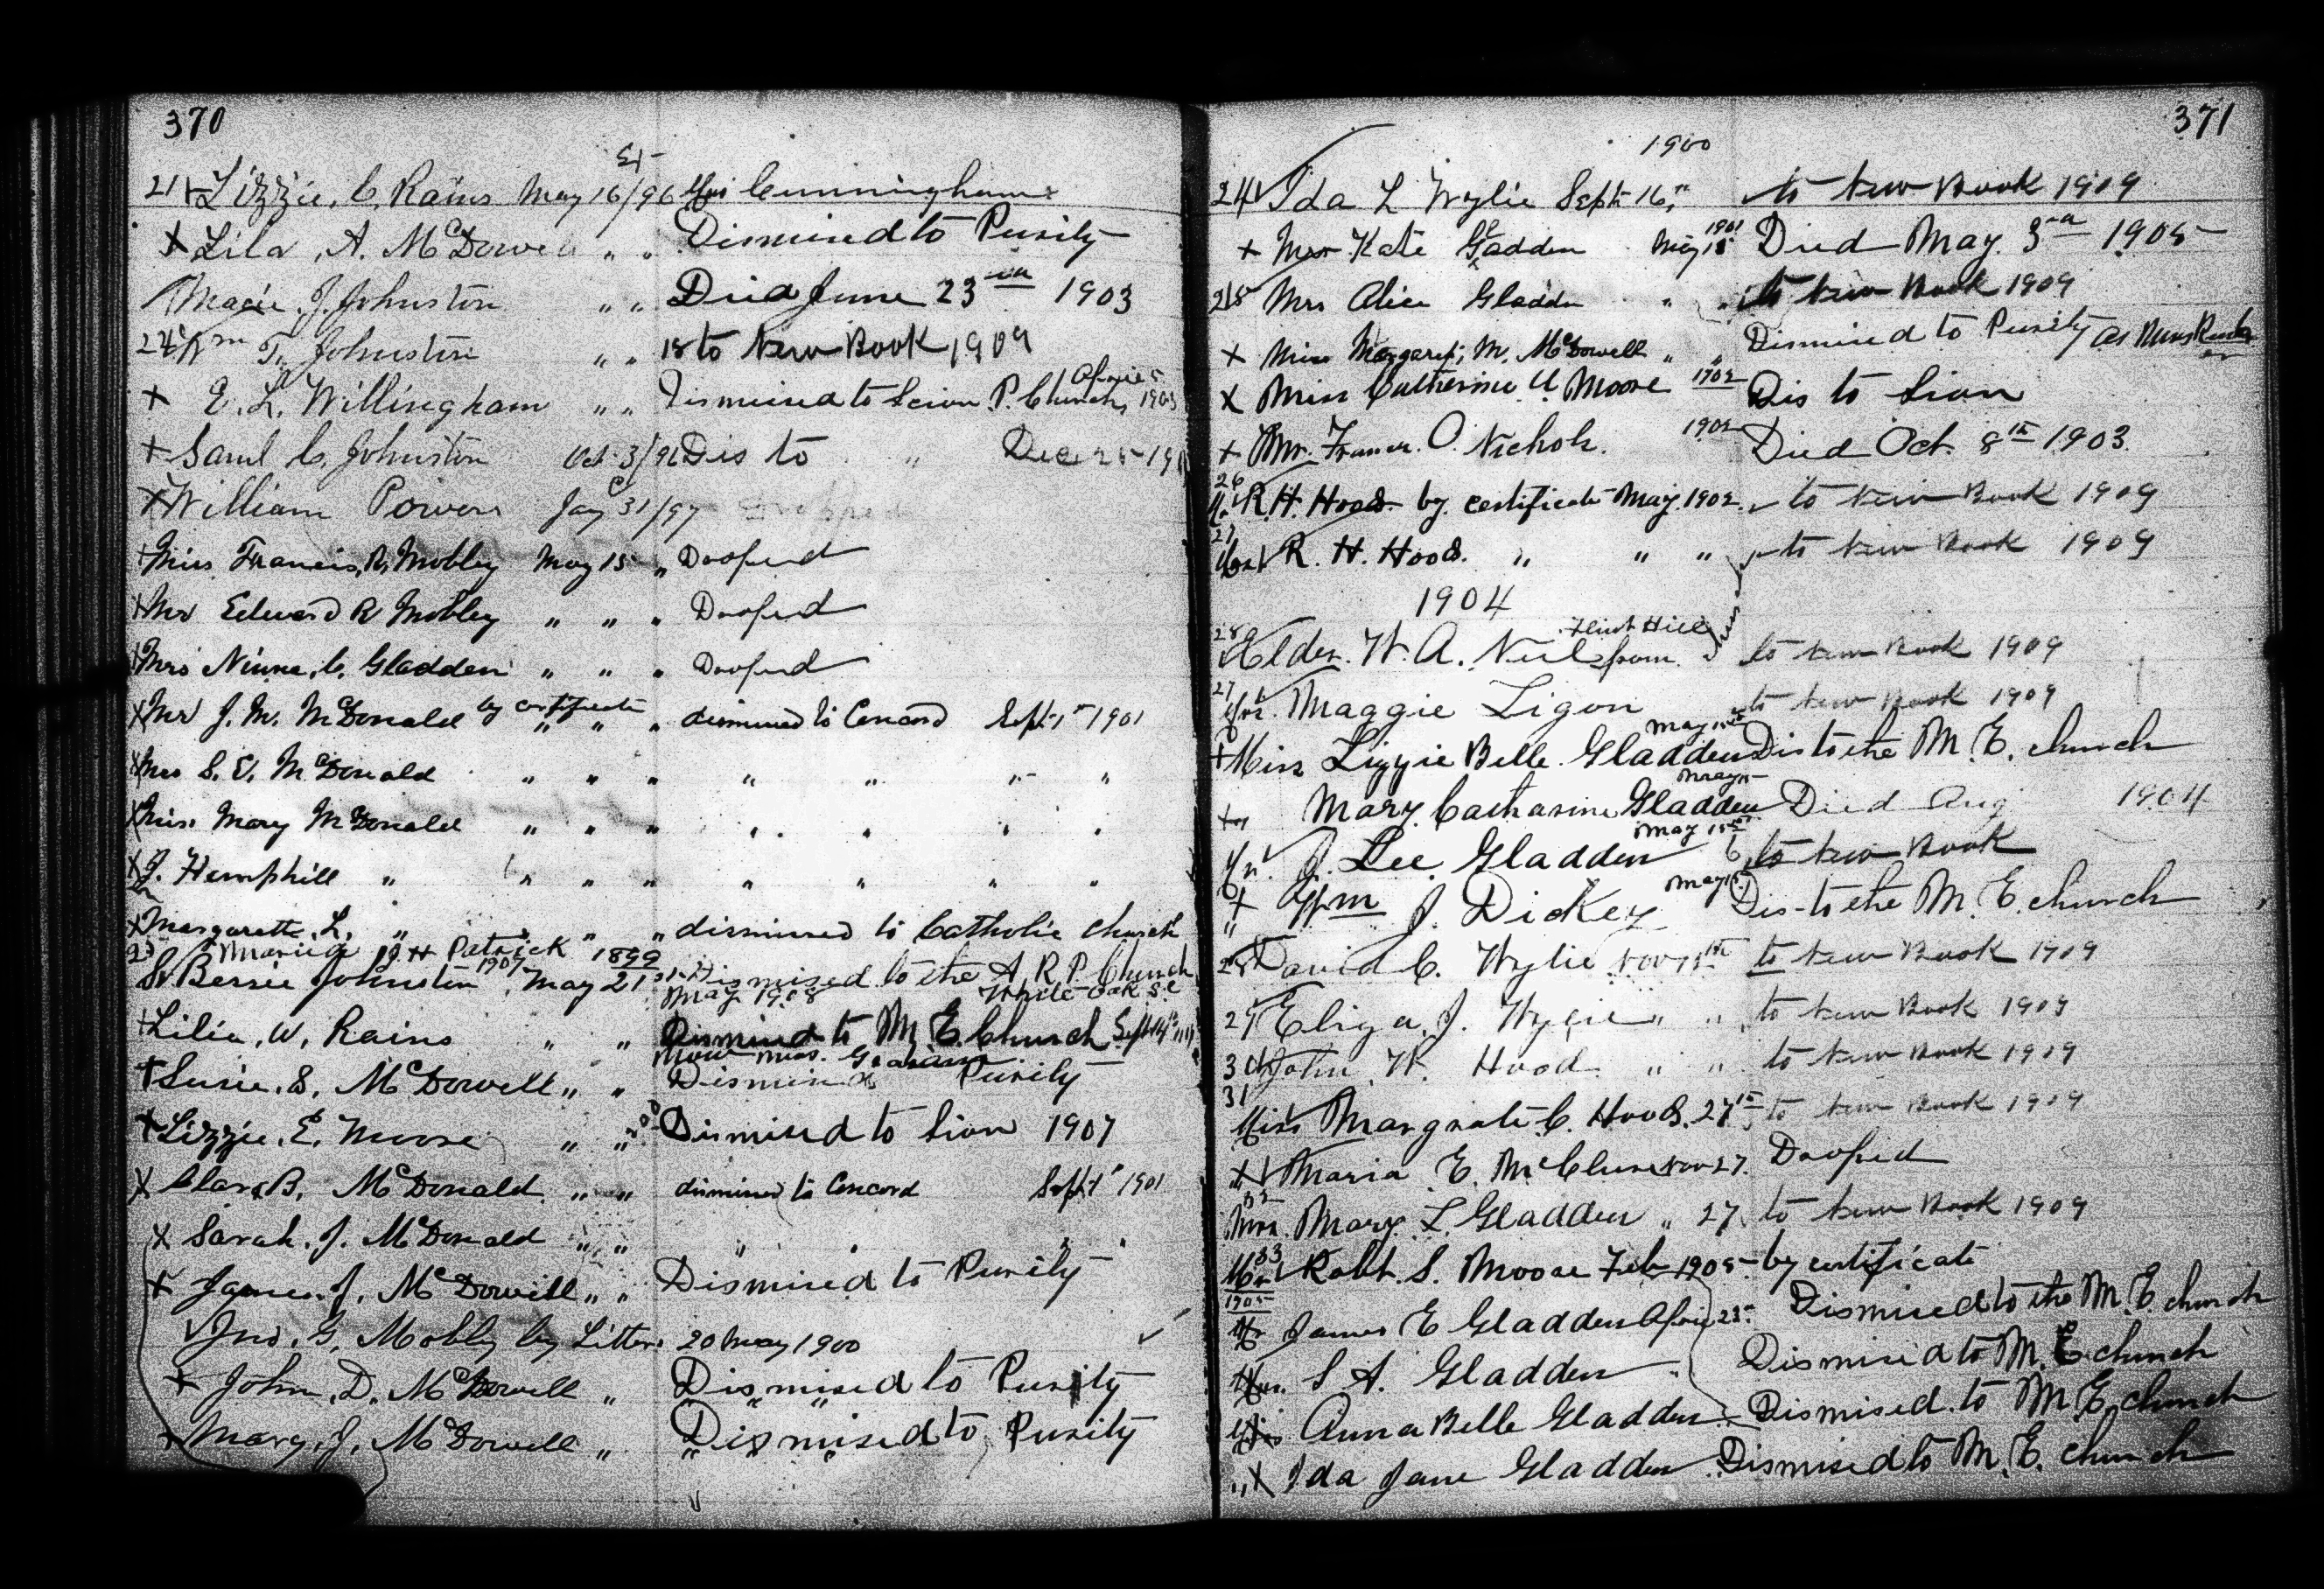 370
21 + Lizzie, C, Rains May 16/96 Mrs Cunningham
+ Lila, A. McDowell " " Dismised to Purity
Magie J. Johnston " " Died June 23rd 1903
22 Wm T. Johnston " " 18 to New Book 1909
+ E. L. Willingham " " Dismised to Scion P. Church, Aprie 5 1903
+ Saml C, Johnston Oct 3/96 Dis to " Dec 25 190
+ William Powers Jay 31/97 Dropped
+ Miss Francis, R, Mobley May 15 " Droped
+ Mr Edward R Mobley " " " Droped
Mrs Ninna, C. Gladden " " " Droped
X Mr J. M. McDonald by certificate " " " dismissed to Concord Sept 1st 1901
X Mrs S. E, McDonald " " " " " " "
X Miss Mary McDonald " " " " " " "
X J. Hemphill " " " " " " " "
X Margarette, L. " " " " dismissed to Catholic Church
23 Maried J. H Patrick 1899
Bessie Johnston, May 21 1907 Dismised to the A. R. P. Church
May 1908 White Oak S.C
+ Lilie, W, Rains " " Dismised to M. E. Church Sept 14th
now Mrs. Graham
+ Susie, S, McDowell " " Dismised Purity
+ Lizzie, E, Moore " " Dismised to Sion 1907
X Clara B, McDonald " " dismissed to Concord Sept 1st 1901
X Sarah, J. McDonald " " " " " "
+ James, J, McDowell " " Dismised to Purity
Jno, G, Mobly by Letter 20 May 1900
+ John, D, McDowell " Dismised to Purity
Mary, J, McDowell " Dismised to Purity
371
1900
24 Ida L Wylie Sept 16, to New Book 1909
+ Mrs Kate Gladden May 15 1901 Died May 3rd 1905
25 Mrs Alice Gladden " " to New Book 1909
+ Miss Margaret, M, McDowell " " Dismised to Purity as Mrs
X Miss Catherine U Moore 1902 Dis to Sion
+ Mr. O. Nichols. 1902 Died Oct. 8th 1903
26
Mr R. H. Hood by certificate May 1902 to New Book 1909
27
Mrs R. H. Hood. " " " to New Book 1909
1904
28 Elder. W. A. Neil from Flint Hill to New Book 1909
27 Mrs. Maggie Ligon to New Book 1909
+ Miss Lizzie Belle Gladden May 15 Dis to the M. E. church
+ " Mary Catharine Gladden May 15 Died Aug 1904
Mr. J. Lee Gladden May 15 to New Book
+ " Wm J. Dickey May 15 Dis to the M. E. church
28 David C. Wylie Nov 15th to New Book 1909
29 Eliza, J. Wylie " " to New Book 1909
30 John W. Hood " " to New Book 1909
31
Miss Margrate C. Hood, 27th to New Book 1909
+ Maria E. McClure Nov 27. Droped
32
Mrs. Mary. L Gladden " 27, to New Book 1909
33
Mr Robt. S. Moore Feb 1905. by certificate
1905
Mr James E Gladden Aprie 23 Dismised to the M. E church
Mrs. S A. Gladden Dismised to M. E. church
Miss Anna Belle Gladden Dismised to M. E. church
" X Ida Jane Gladden Dismised to M. E. church